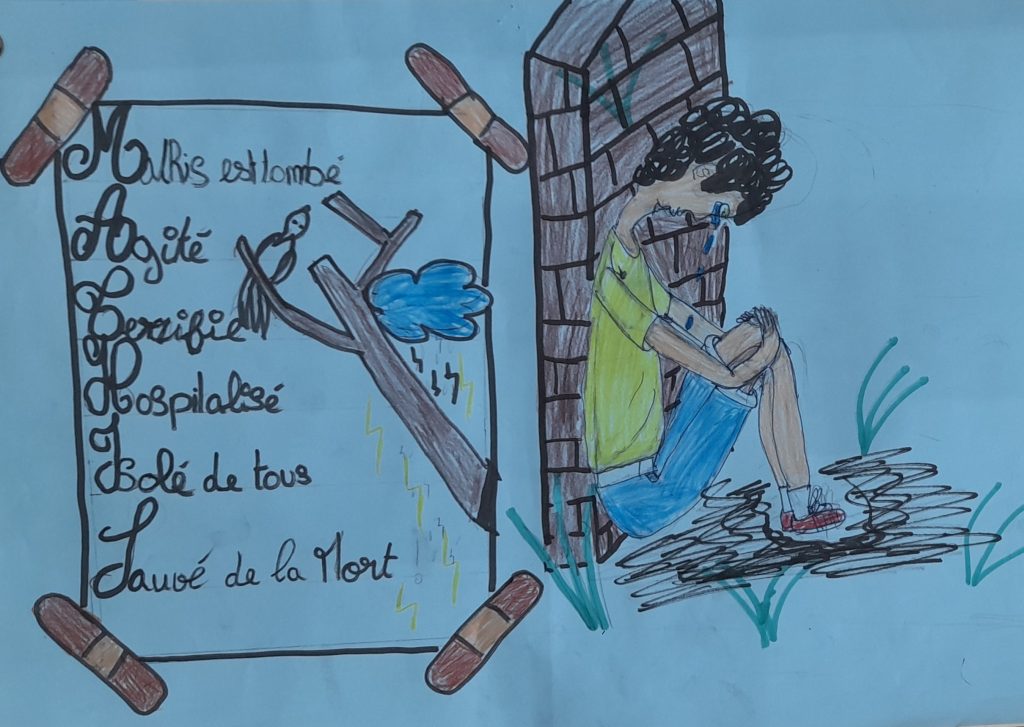 Mathis est tombé
Agité
Terrifié
Hospitalisé
Isolé de tous
Sauvé de la Mort